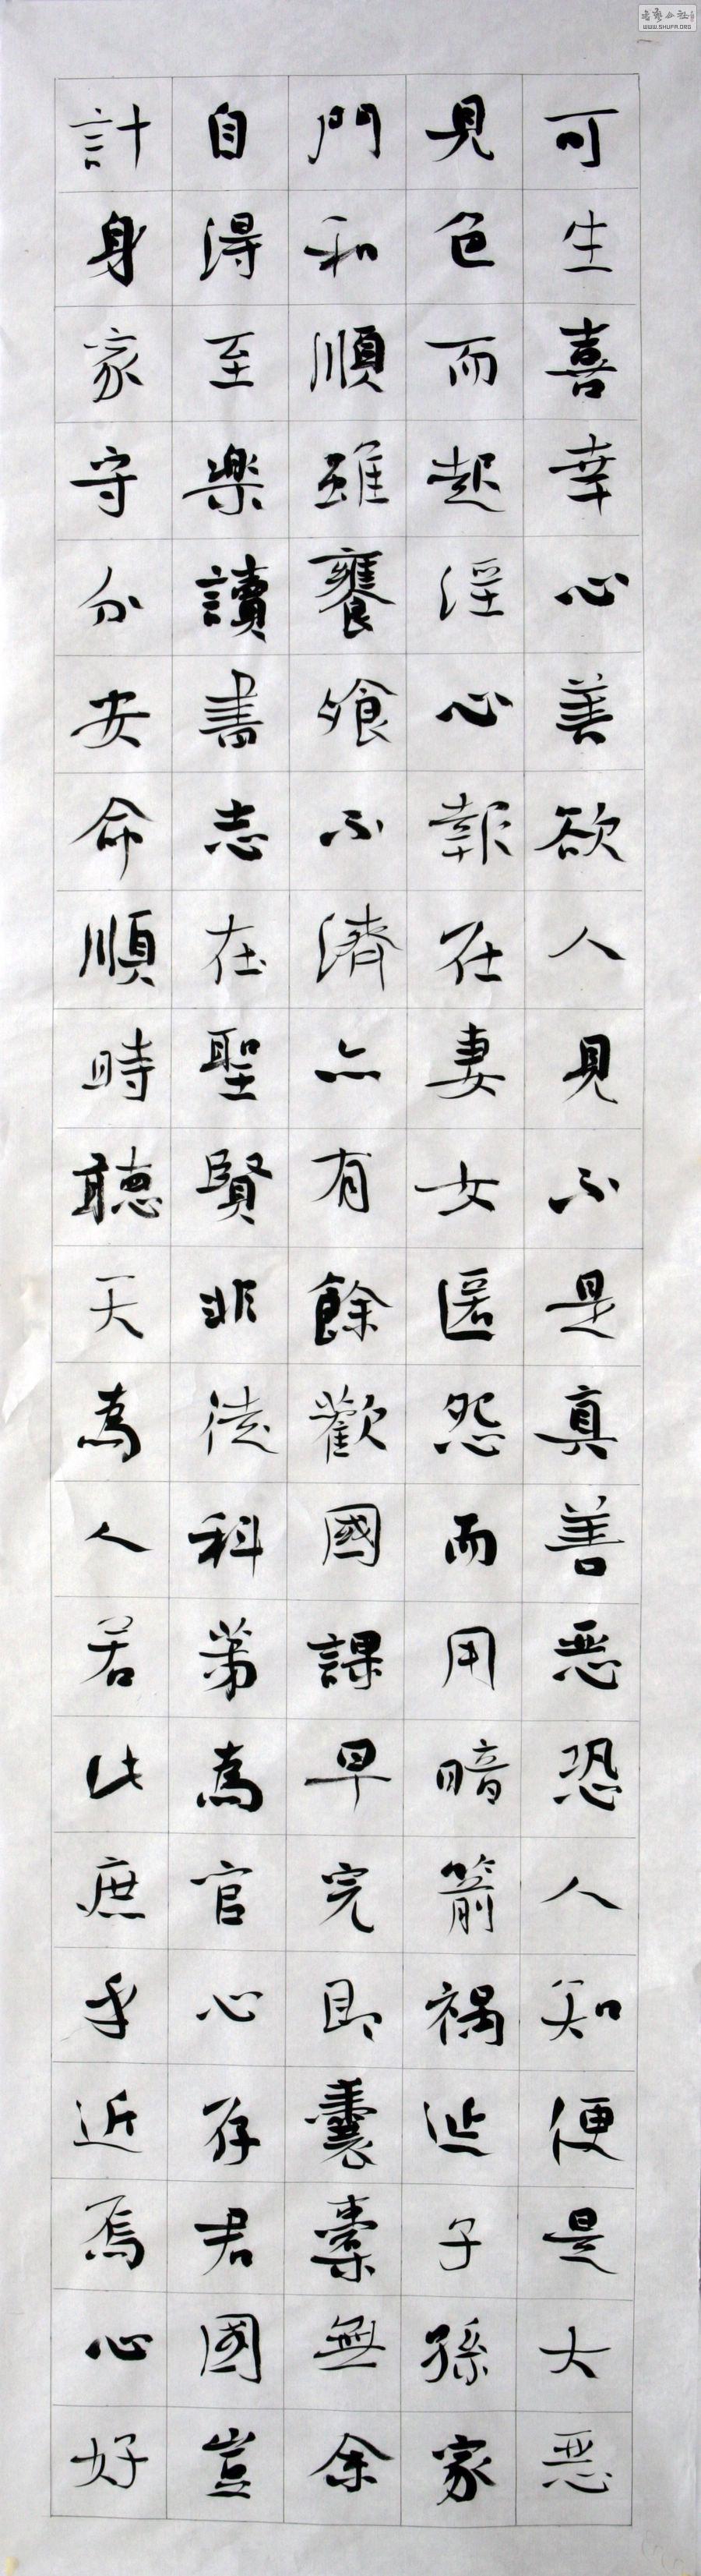 可生喜幸心善欲人見不是真善恶恐人知便是大恶
見色而起淫心報在妻女匿怨而用暗箭禍延子孫家
門和順雖饔飧不濟亦有餘歡國課早完即囊橐無余
自得至樂讀書志在聖賢非徒科第為官心存君國豈
計身家守分安命順時聽天為人若此庶乎近焉心好
WWW.SHUFA.ORG